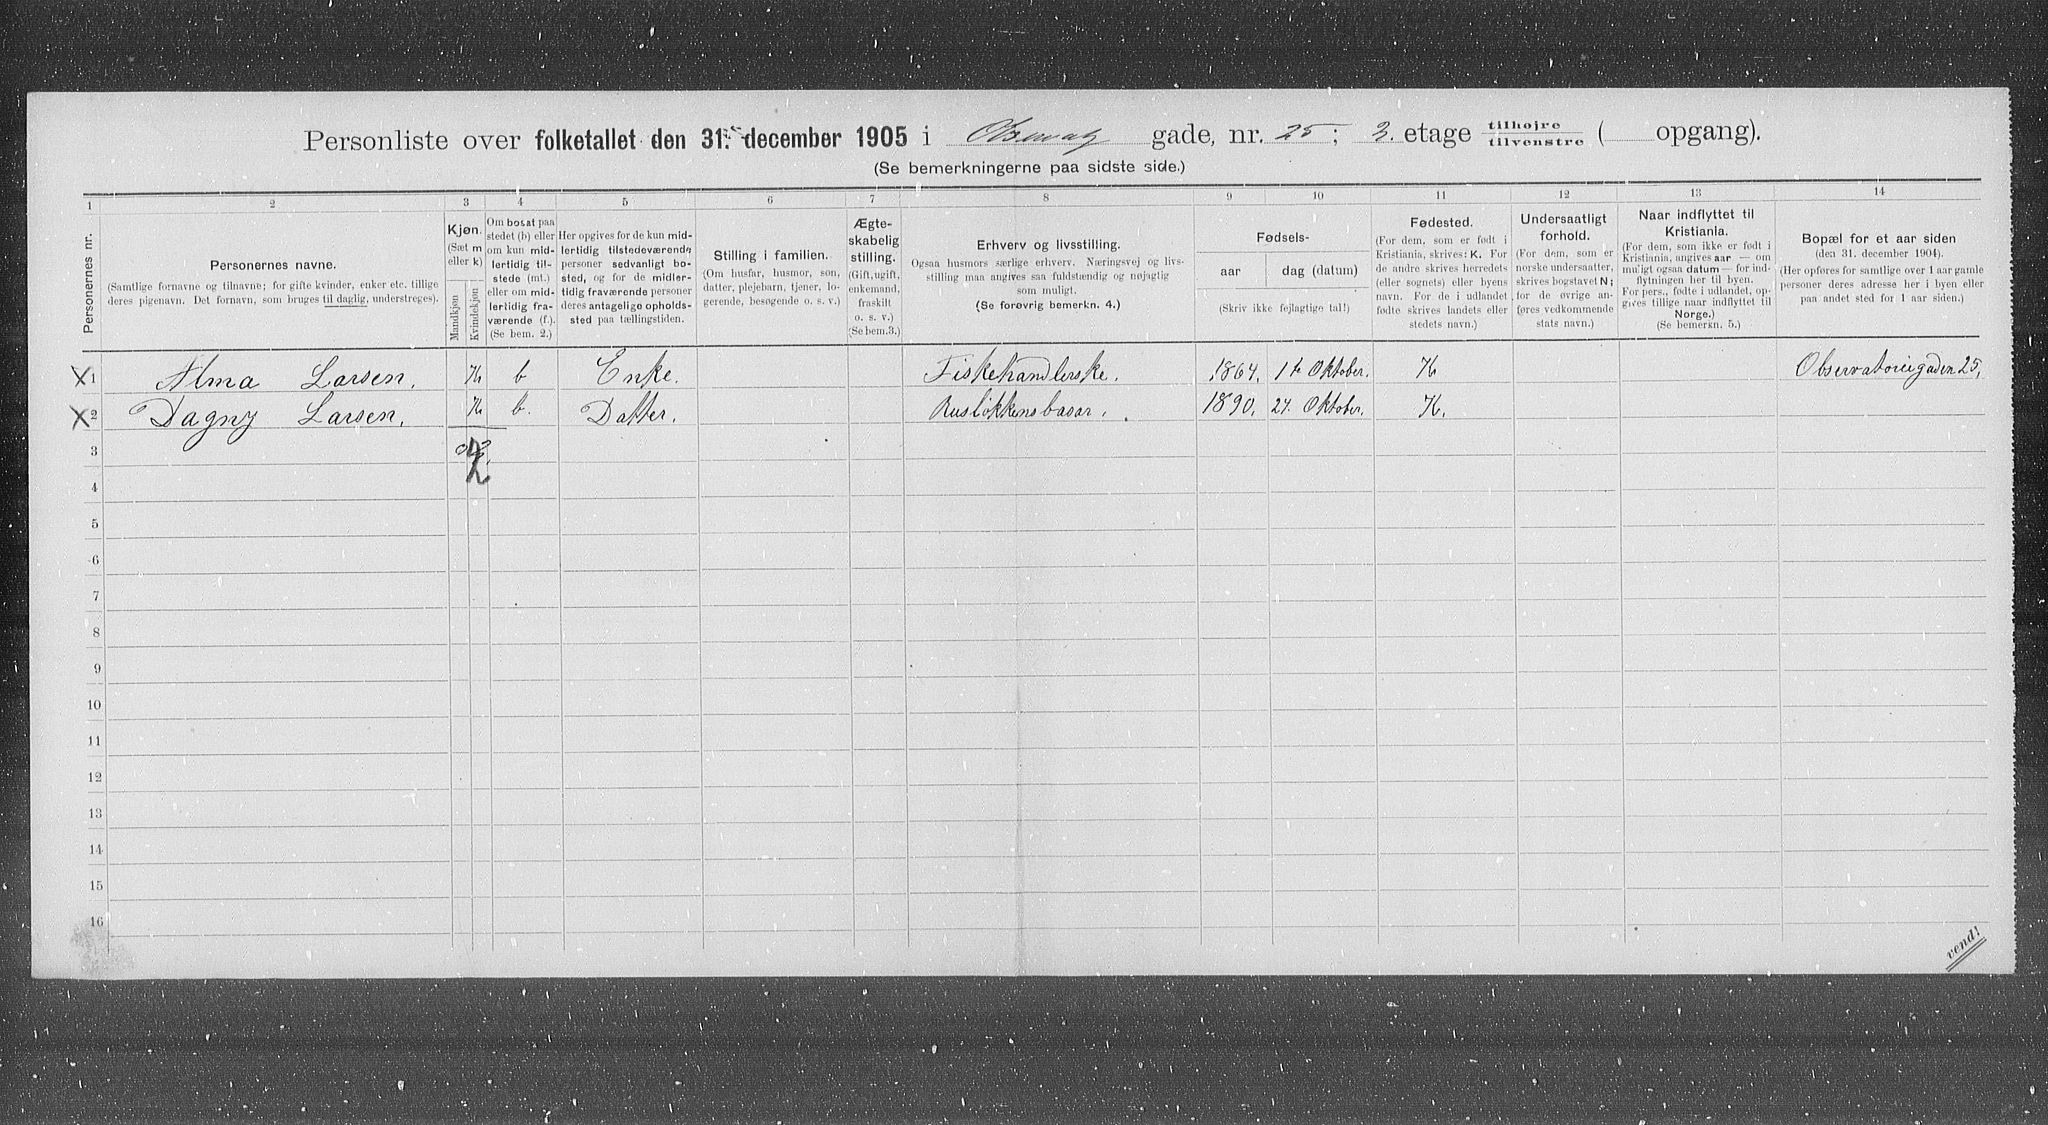 Personliste over folketallet den 31. december 1905 i Observat gade, nr. 25; 3. etage tilhøjre tilvenstre ( opgang).
(Se bemerkningerne paa sidste side.)
1 2 3 4 5 6 7 8 9 10 11 12 13 14
Personernes nr.
Personernes navne.
(Samtlige fornavne og tilnavne; for gifte kvinder, enker etc. tillige
deres pigenavn. Det fornavn, som bruges til daglig, understreges).
Kjøn.
(Sæt m
eller k)
Mandkjøn
Kvindekjøn
Om bosat paa
stedet (b) eller
om kun mid-
lertidig til-
stede (mt.)
eller om mid-
lertidig fra-
værende (f.).
(Se bem. 2.)
Her opgives for de kun mid-
lertidig tilstedeværende
personer sedvanligt bo-
sted, og for de midler-
tidig fraværende personer
deres antagelige opholds-
sted paa tællingstiden.
Stilling i familien.
(Om husfar, husmor, søn,
datter, plejebarn, tjener, lo-
gerende, besøgende o. s. v.)
Ægte-
skabelig
stilling.
(Gift, ugift,
enkemand,
fraskilt
o. s. v.)
(Se bem. 3.)
Erhverv og livsstilling.
Ogsaa husmors særlige erhverv. Næringsvej og livs-
stilling maa angives saa fuldstændig og nøjagtig
som muligt.
(Se forøvrig bemerkn. 4.)
Fødsels-
aar
dag (datum)
(Skriv ikke fejlagtige tal!)
Fødested.
(For dem, som er født i
Kristiania, skrives: K. For
de andre skrives herredets
(eller sognets) eller byens
navn. For de i udlandet
fødte skrives landets eller
stedets navn.)
Undersaatligt
forhold.
(For dem, som er
norske undersaatter,
skrives bogstavet N;
for de øvrige an-
føres vedkommende
stats navn.)
Naar indflyttet til
Kristiania.
(For dem, som ikke er født i
Kristiania, angives aar — om
muligt ogsaa datum — for ind-
flytningen her til byen.
For pers., fødte i udlandet, op-
gives tillige naar indflyttet til
Norge.)
(Se bemerkn. 5.)
Bopæl for et aar siden
(den 31. december 1904).
(Her opføres for samtlige over 1 aar gamle
personer deres adresse her i byen eller
paa andet sted for 1 aar siden.)
X 1 Alma Larsen. K b Enke. Fiskehandlerske. 1864. 1te Oktober. K Observatoriegaden 25,
X 2 Dagny Larsen. K b. Datter. Ruseløkkensbasar. 1890. 27. Oktober. K.
3
2
4
5
6
7
8
9
10
11
12
13
14
15
16
vend!